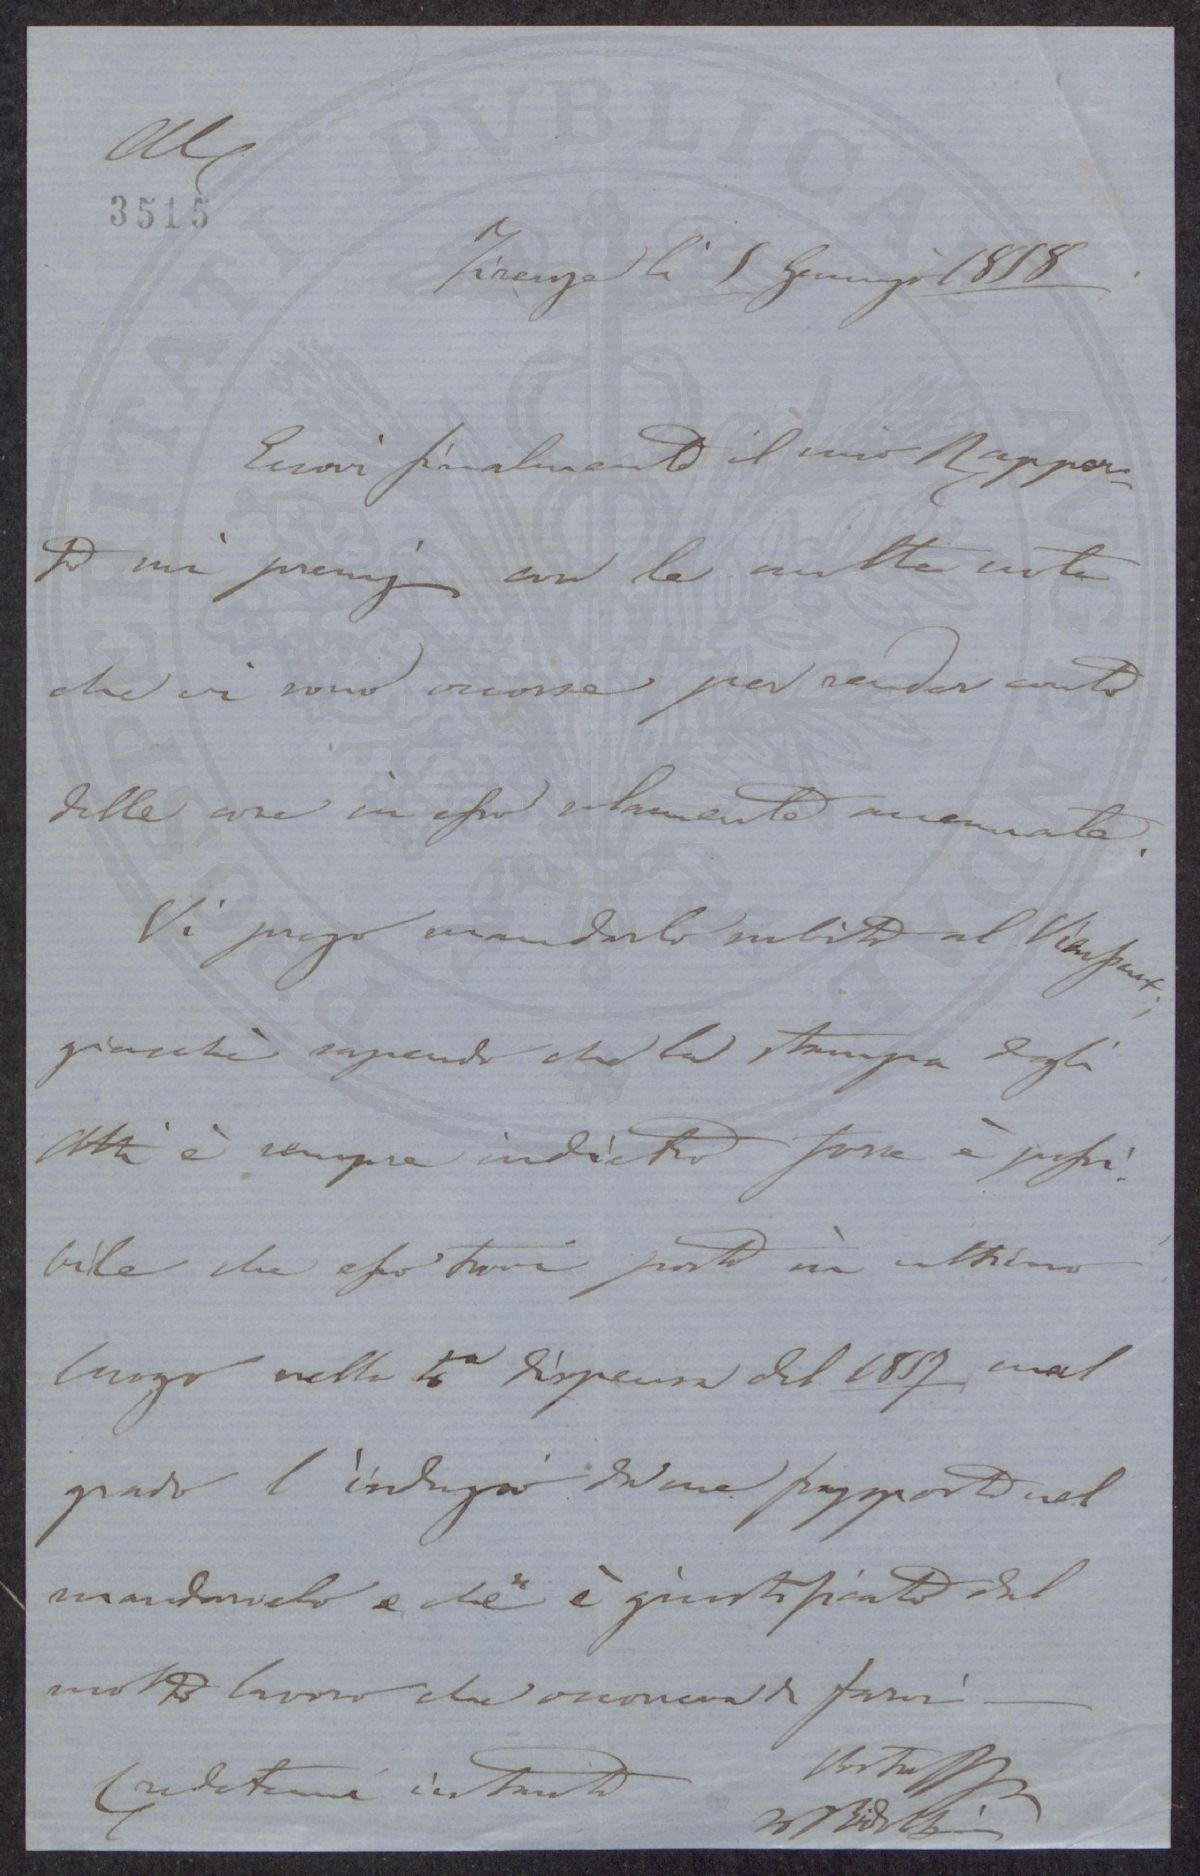 3515
Firenze li 5 Gennajo 1858
Eccovi finalmente il mio Rappor=
to sui premj con le molte note
che vi sono occorse per render conto
delle cose in esso solamente accennate.
Vi prego mandarlo subito al Vieusseux;
giacchè sapendo che la stampa degli
Atti è sempre indietro forse è possi.
bile che esso trovi posto in ultimo
luogo nella 4a dispensa del 1857 mal
grado l'indugio da me frapposto nel
mandarvelo e che è giustificato dal
molto lavoro che occorreva di farvi —
Credetemi intanto
C Ridolfi
PROSPERITATI PVBLICAE AVGENDAE